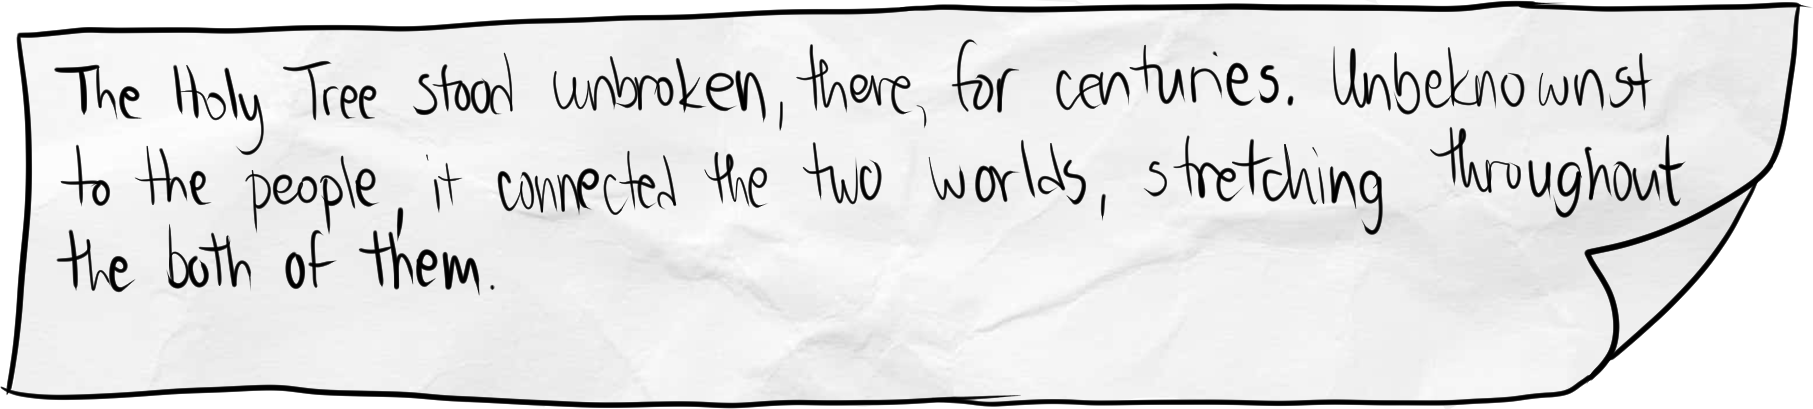 The Holy Tree stood unbroken, there, for centuries. Unbeknownst
to the people, it connected the two worlds, stretching throughout
the both of them.